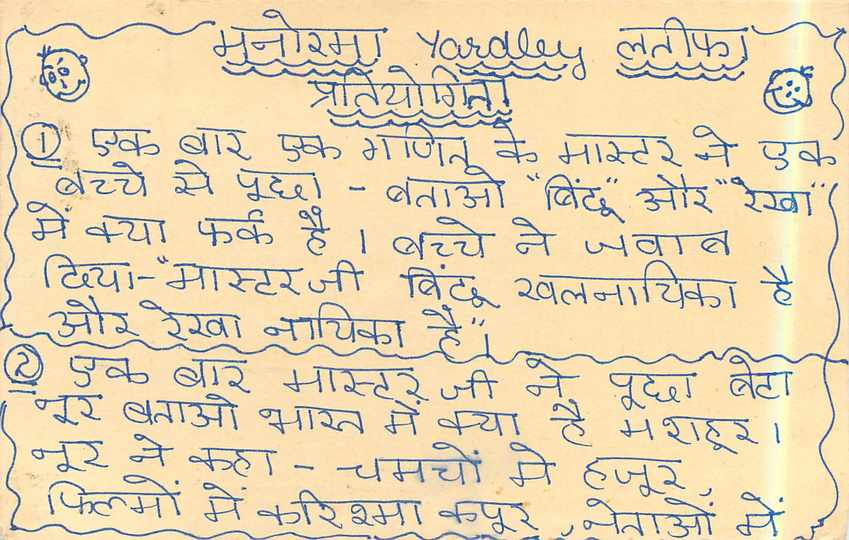 मनोरमा Yardley लतीफा
प्रतियोगिता
① एक बार एक गणित के मास्टर ने एक
बच्चे से पूछा - बताओ "बिंदू" और "रेखा"
में क्या फर्क है । बच्चे ने जवाब
दिया-"मास्टर जी बिंदू खलनायिका है
और रेखा नायिका है"।
② एक बार मास्टर जी ने पूछा बेटा
नूर बताओ भारत में क्या है मशहूर ।
नूर ने कहा - चमचों मे हजूर,
फिल्मों में करिश्मा कपूर, नेताओं में